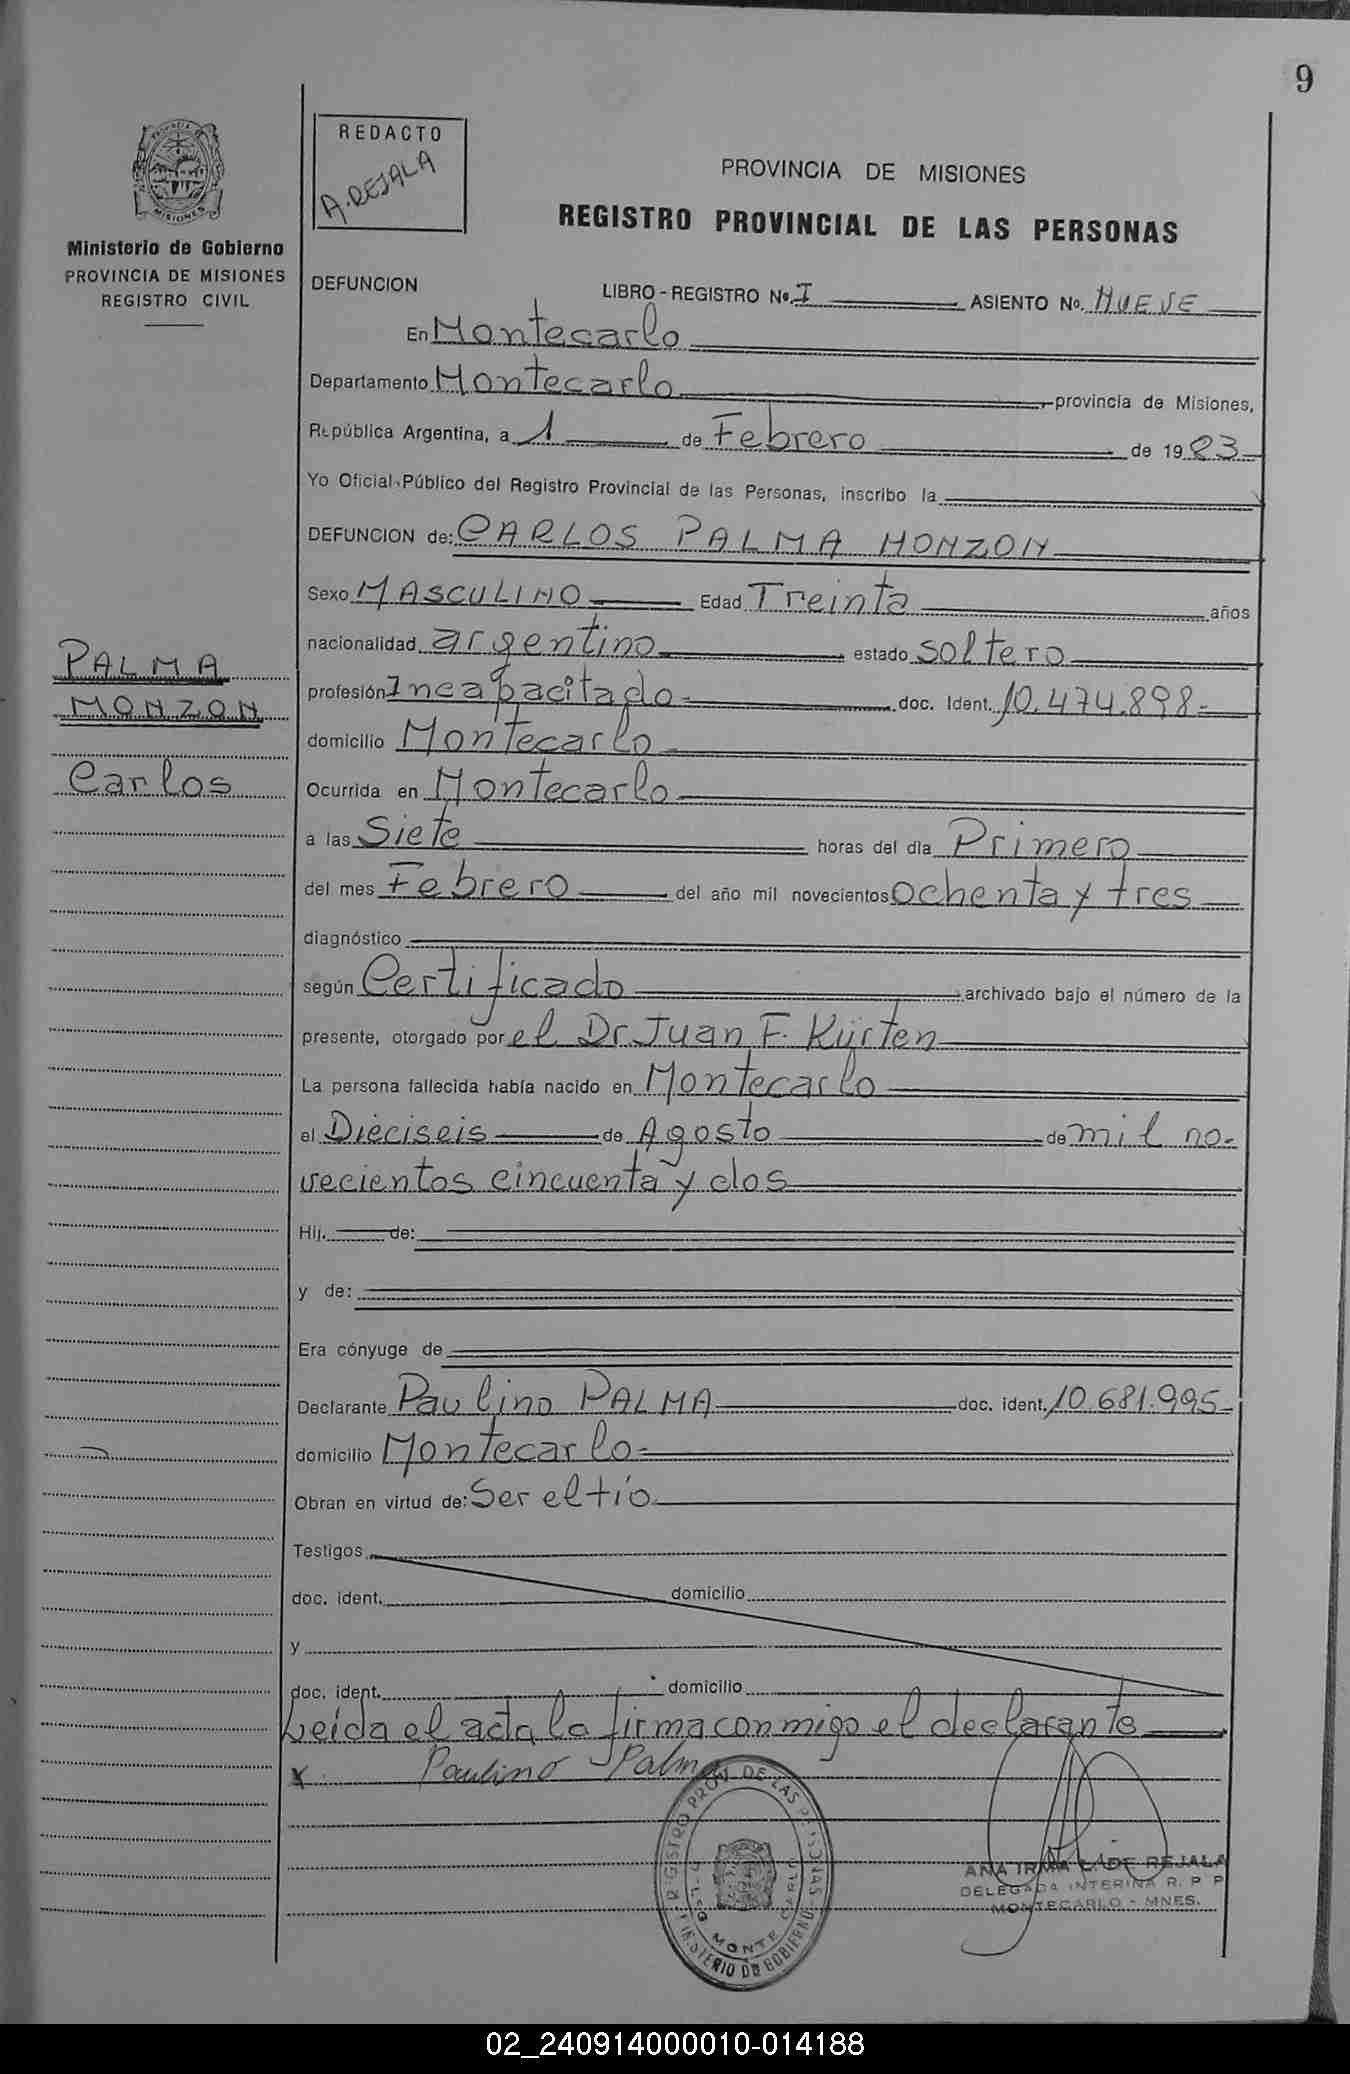 9
REDACTO
A. REJALA
PROVINCIA DE MISIONES
REGISTRO PROVINCIAL DE LAS PERSONAS
PROVINCIA DE
MISIONES
Ministerio de Gobierno
PROVINCIA DE MISIONES
REGISTRO CIVIL
DEFUNCION
LIBRO - REGISTRO Nº. I ASIENTO No. NUEVE
En Montecarlo
Departamento Montecarlo, provincia de Misiones,
República Argentina, a 1 de Febrero de 1983
Yo Oficial Público del Registro Provincial de las Personas, inscribo la
DEFUNCION de: CARLOS PALMA MONZON
Sexo MASCULINO Edad Treinta años
nacionalidad argentino estado soltero
PALMA
MONZON
Carlos
profesión Incapacitado- doc. Ident. 10.474.898-
domicilio Montecarlo
Ocurrida en Montecarlo
a las Siete horas del día Primero
del mes Febrero del año mil novecientos ochenta y tres
diagnóstico
según Certificado archivado bajo el número de la
presente, otorgado por el Dr. Juan F. Kürten
La persona fallecida había nacido en Montecarlo
el Dieciseis de Agosto de mil no-
vecientos cincuenta y dos
Hij. de:
y de:
Era cónyuge de
Declarante Paulino PALMA doc. ident. 10.681.995-
domicilio Montecarlo-
Obran en virtud de: Ser el tío
Testigos
doc. ident. domicilio
y
doc. ident. domicilio
Leída el acta la firma conmigo el declarante
x Paulino Palma
REGISTRO PROV. DE LAS PERSONAS
MONTE CARLO
MINISTERIO DE GOBIERNO
ANA IRMA DE REJALA
DELEGADA INTERINA R. P. P
MONTECARLO - MNES.
02_240914000010-014188